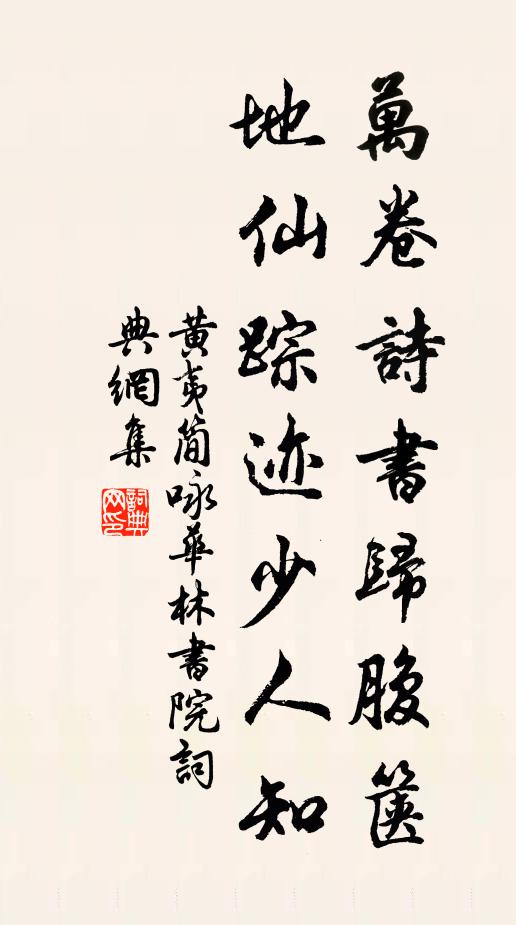 萬卷詩書歸腹篋
地仙踪迹少人知
黄夷简咏華林書院詞
典網集
詞典網印